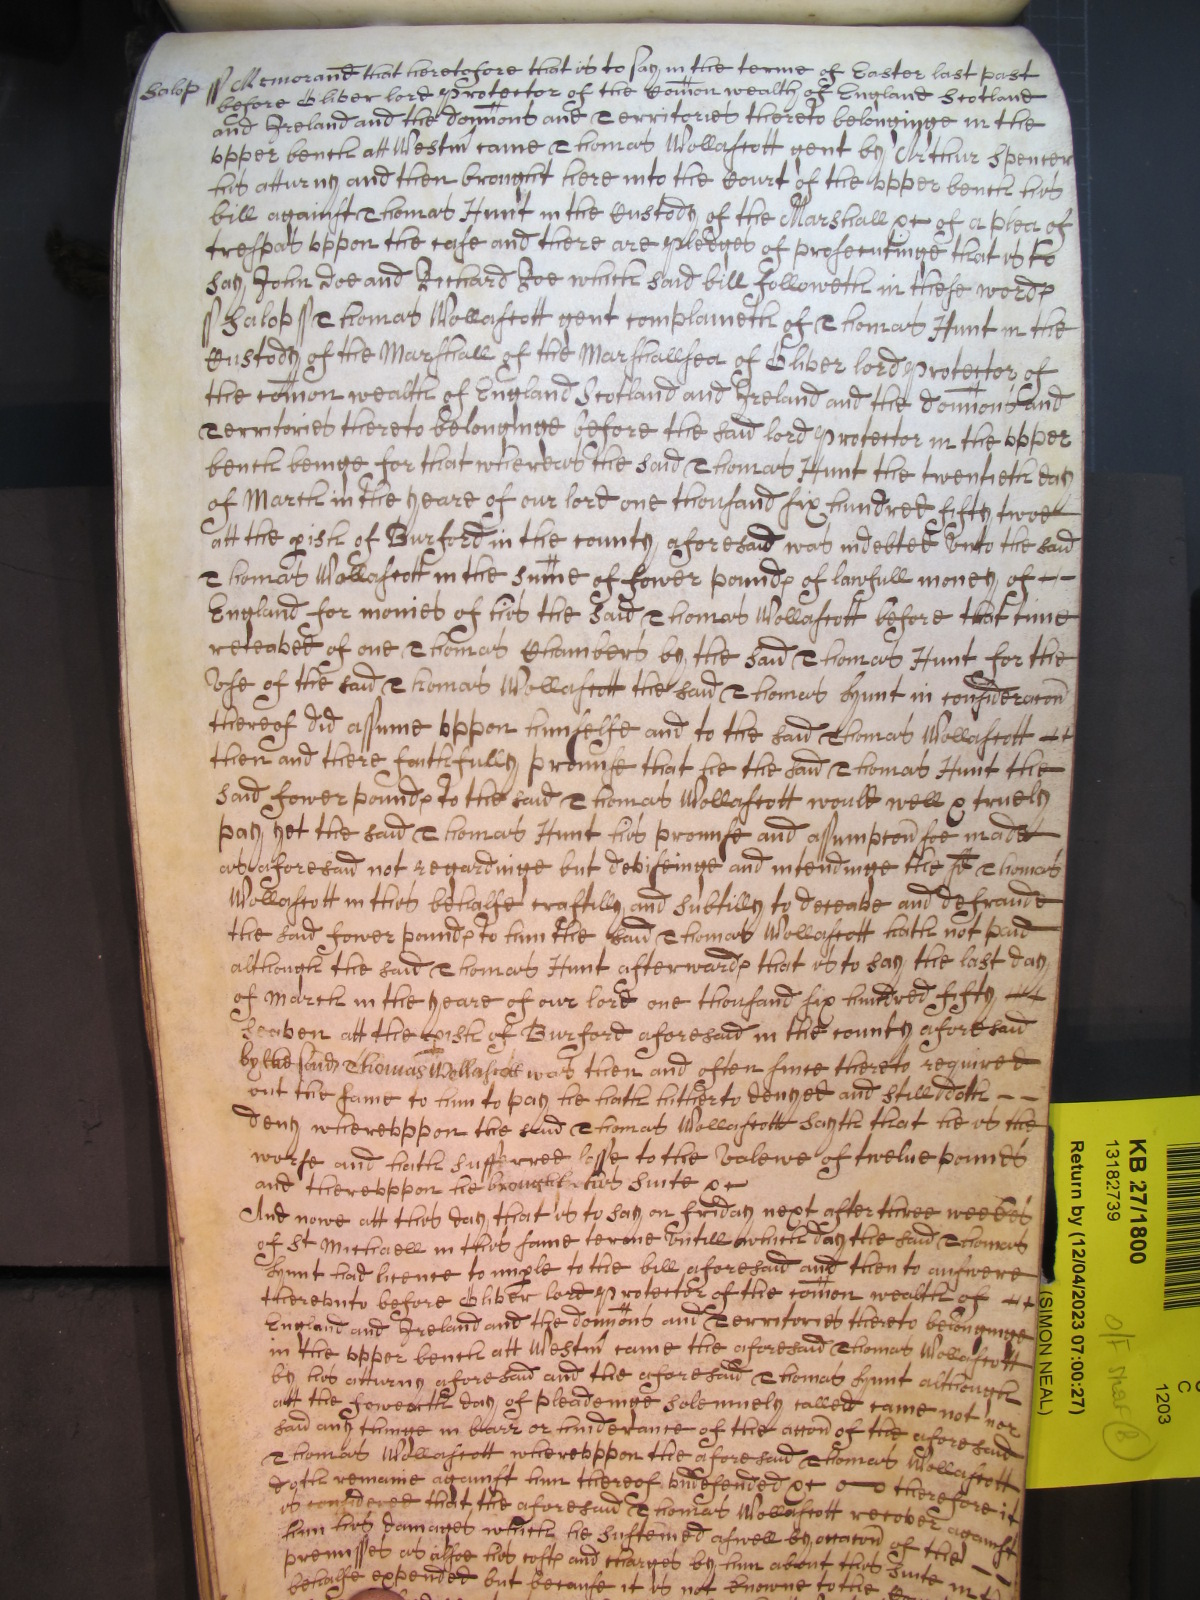 Salop ss Memorand that heretofore that is to say in the terme of Easter last past
before Oliver lord Protector of the Comon wealth of England Scotland
and Ireland and the domions and Territories thereto belonginge in the
upper bench att Westm came Thomas Wollascott gent by Arthur Spencer
his atturny and then brought here into the Court of the upper bench his
bill against Thomas Hunt in the Custody of the Marshall &c of a plea of
trespas uppon the case and there are pledges of prosecutinge that is to
say John Doe and Richard Roe which said bill followeth in these wordes
ss Salop ss Thomas Wollascott gent complaineth of Thomas Hunt in the
Custody of the Marshall of the Marshallsea of Oliver lord Protector of
the comon wealth of England Scotland and Ireland and the domions and
Territories thereto belonginge before the said lord Protector in the upper
bench beinge for that whereas the said Thomas Hunt the twentieth day
of March in the yeare of our lord one thousand six hundred fifty twoe
att the pish of Burford in the county aforesaid was indebted unto the said
Thomas Wollascott in the sume of fower poundes of lawfull money of
England for monies of his the said Thomas Wollascott before that time
receaved of one Thomas Chambers by the said Thomas Hunt for the
use of the said Thomas Wollascott the said Thomas Hunt in consideracon
thereof did assume uppon himselfe and to the said Thomas Wollascott
then and there faithfully promise that he the said Thomas Hunt the
said fower poundes to the said Thomas Wollascott would well & truely
pay yet the said Thomas Hunt his promise and assumpcon soe made
as aforesaid not regardinge but deviseinge and intendinge the sd Thomas
Wollascott in this behalfe craftilly and subtilly to deceave and defraude
the said fower poundes to him the said Thomas Wollascott hath not paid
although the said Thomas Hunt afterwardes that is to say the last day
of March in the yeare of our lord one thousand six hundred fifty
seaven att the pish of Burford aforesaid in the county aforesaid
by the said Thomas Wollascott was then and often since thereto required
but the same to him to pay he hath hitherto denyed and still doth
deny whereuppon the said Thomas Wollascott sayth that he is the
worse and hath sufferred losse to the valewe of twelve pounds
and thereuppon he brought his suite &c
And nowe att this day that is to say on friday next after three weekes
of St Michaell in this same terme untill which day the said Thomas
Hunt had licence to imple to the bill aforesaid and then to answere
thereunto before Oliver lord Protector of the comon wealth of
England and Ireland and the domions and Territories thereto belonginge
in the upper bench att Westm came the aforesaid Thomas Wollascott
by his atturny aforesaid and the aforesaid Thomas Hunt although
att the fowerth day of pleadinge solemnely called came not nor
said any thinge in barr or hinderance of the accon of the aforesaid
Thomas Wollascott whereuppon the aforesaid Thomas Wollascott
doth remaine against him thereof undefended &c therefore it
is considered that the aforesaid Thomas Wollascott recover against
him his damages which he susteined aswell by occacon of the
premisses as alsoe his costes and charges by him about this suite in
behalfe expended but because it is not knowne to the
KB 27/1800
13182739
Return by (12/04/2023 07:00:27)
(SIMON NEAL)
C
1203